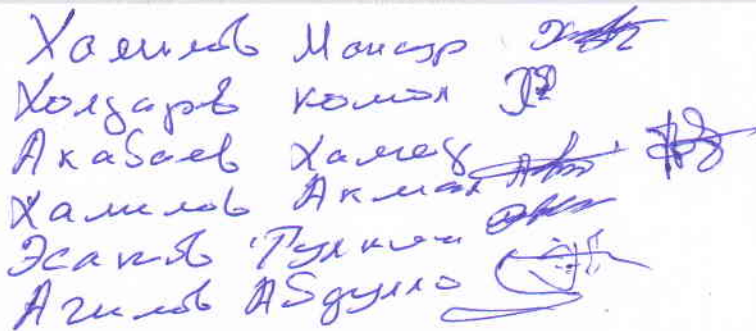 Халилов Мансур
Холдаров Комол
Акабаев Хамед
Хамилов Акмал
Эсанов Тулкин
Агилов Абдулло